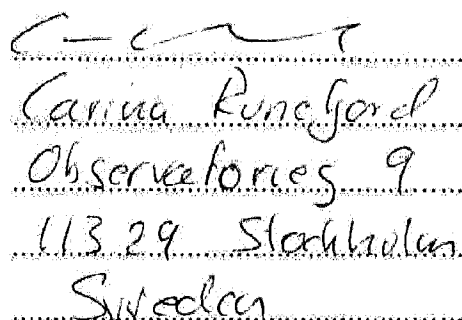 Carina Runefjord
Observatorieg 9
113 29 Stockholm
Sweden